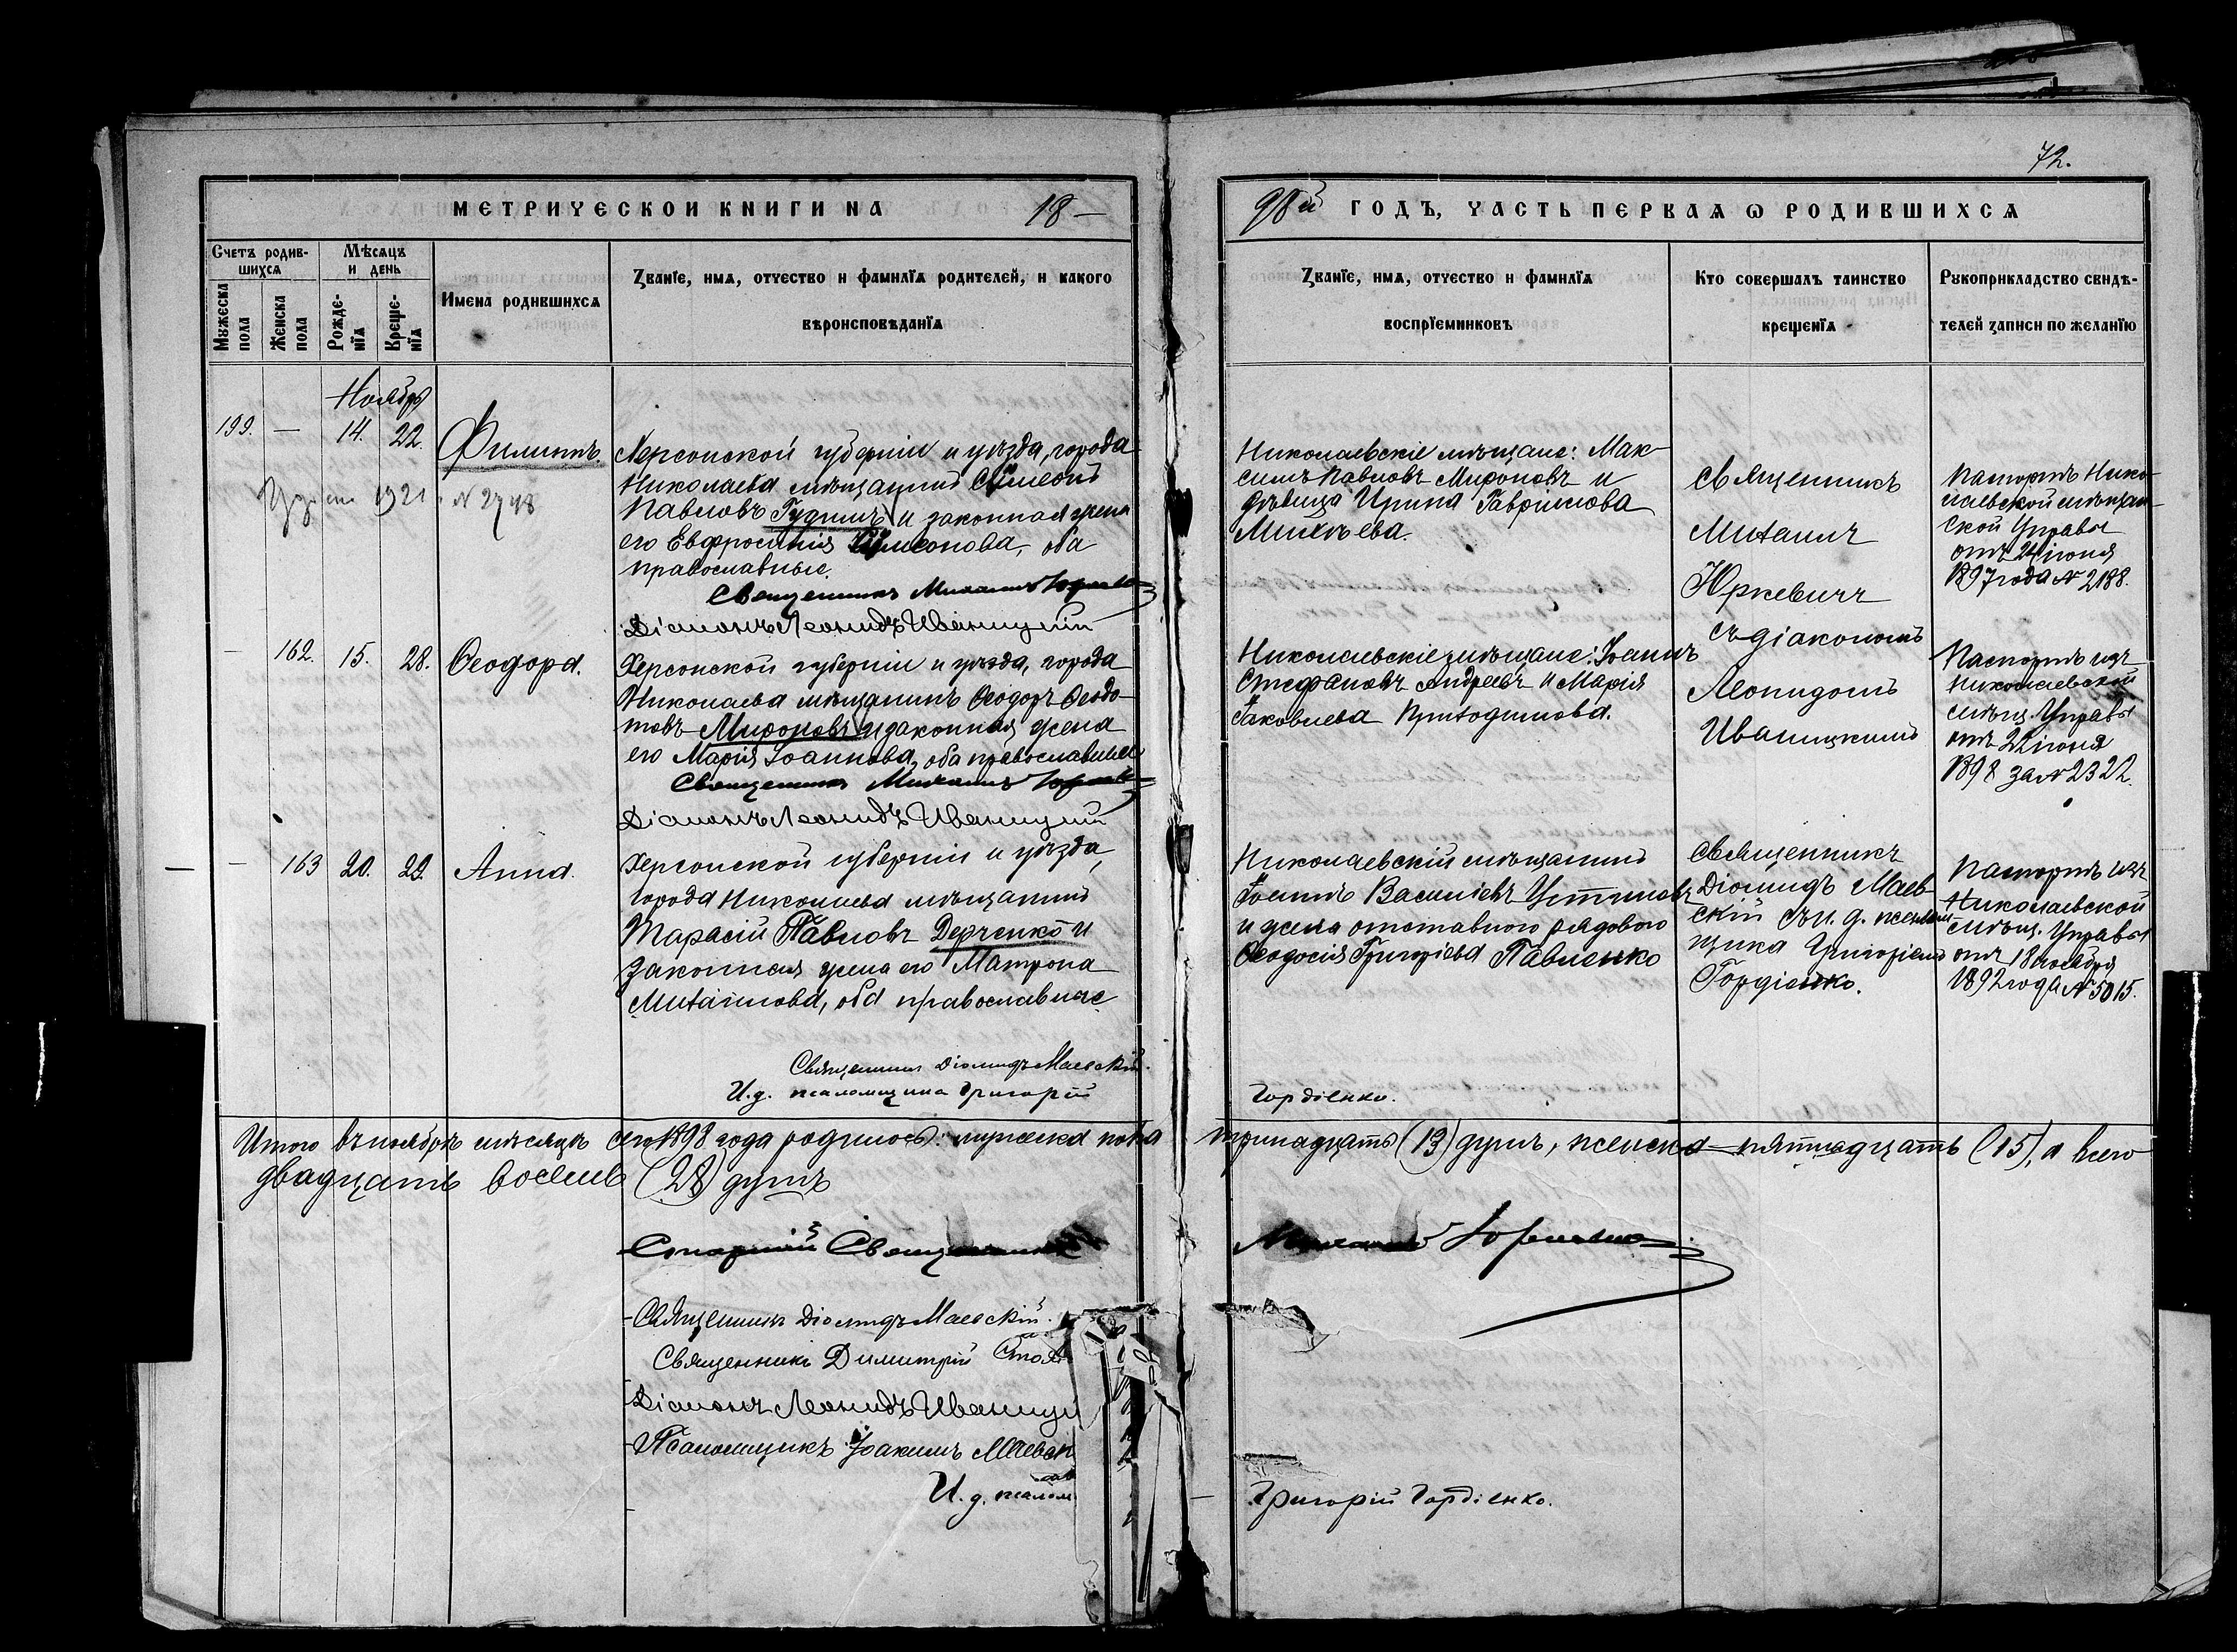 72.
МЕТРИЧЕСКОЙ КНИГИ НА 18—
98й ГОДЪ, ЧАСТЬ ПЕРВАЯ Ѡ РОДИВШИХСЯ
Счетъ родив-
шихся
Мѣсяцъ
и день
Мужеска
пола
Женска
пола
Рожде-
нїя
Креще-
нїя
Имена родившихся
Званїе, имя, отчество и фамилїя родителей, и какого
вѣроисповѣданїя
Званїе, имя, отчество и фамилїя
воспрїемниковъ
Кто совершалъ таинство
крещенїя
Рукоприкладство свидѣ-
телей записи по желанїю
Ноябрь
199. — 14. 22. Филиппъ.
1921 N 2748
Херсонской губерніи и уѣзда, города
Николаева мѣщанинъ Сѵмеонъ
Павловъ Гудимъ и законная жена
его Евфросинія Сѵмеонова, оба
православные.
Священникъ Михаилъ Юркевичъ
Діаконъ Леонидъ Иваницкій
Николаевскіе мѣщане: Мак-
симъ Павловъ Мироновъ и
дѣвица Ирина Гавріилова
Михѣева.
Священникъ
Михаилъ
Юркевичъ
съ діакономъ
Леонидомъ
Иваницкимъ
Паспортъ Нико-
лаевской мѣщан-
ской Управы
отъ 24 іюня
1897 года N 2188.
— 162. 15. 28. Ѳеодора.
Херсонской губерніи и уѣзда, города
Николаева мѣщанинъ Ѳеодоръ Ѳеодо-
товъ Мироновъ и законная жена
его Марія Іоаннова, оба православные
Священникъ Михаилъ Юркевичъ
Діаконъ Леонидъ Иваницкій
Николаевскіе мѣщане: Іоаннъ
Стефановъ Андреевъ и Марія
Іаковлева Приходимова.
Паспортъ изъ
Николаевской
мѣщ. Управы
отъ 22 іюня
1898 за N 2322.
— 163 20. 29. Анна.
Херсонской губерніи и уѣзда,
города Николаева мѣщанинъ
Тарасій Павловъ Дерченко и
законная жена его Матрона
Михаилова, оба православные
Священникъ Діомидъ Маевскій.
И. д. псаломщика Григорій Гордіенко.
Николаевскій мѣщанинъ
Іоаннъ Василіевъ Устиновъ
и жена отставного рядового
Ѳеодосія Григоріева Павленко
Священникъ
Діомидъ Маев-
скій съ и. д. псалом-
щика Григоріемъ
Гордіенко.
Паспортъ изъ
Николаевской
мѣщ. Управы
отъ 18 ноября
1892 года N 5015.
Итого въ ноябрѣ мѣсяцѣ сего 1898 года родилось: мужеска пола тринадцать (13) душъ, женска — пятнадцать (15), а всего
двадцать восемь (28) душъ
Священникъ Михаилъ Юркевичъ
Священникъ Діомидъ Маевскій.
Священникъ Димитрій
Діаконъ Леонидъ Иваницкій
Псаломщикъ Іоакимъ
И. д. псалом
Григорій Гордіенко.